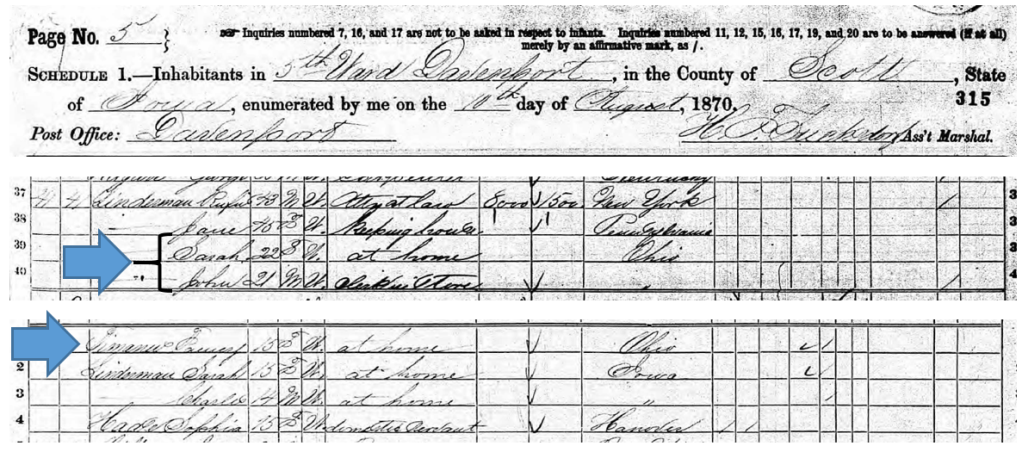 Page No. 5 } Inquiries numbered 7, 16, and 17 are not to be asked in respect to infants. Inquiries numbered 11, 12, 15, 16, 17, 19, and 20 are to be answered (if at all)
merely by an affirmative mark, as /.
SCHEDULE 1.—Inhabitants in 5th Ward Davenport, in the County of Scott, State
of Iowa, enumerated by me on the 10th day of August, 1870. 315
Post Office: Davenport H. Ass't Marshal.
37 41 41 Linderman 43 M W. Atty at law 8000 1500 New York 3
38 — Jane 45 F W. Keeping house Pennsylvania 3
39 — Sarah 22 F W. at home Ohio 3
40 — John 21 M W. Clerk in Store " 4
15 F W. at home Ohio
2 Linderman Sarah 15 F W. at home Iowa
3 — Charles 14 M W. at home "
4 Sophia 15 F W domestic servant Hanover